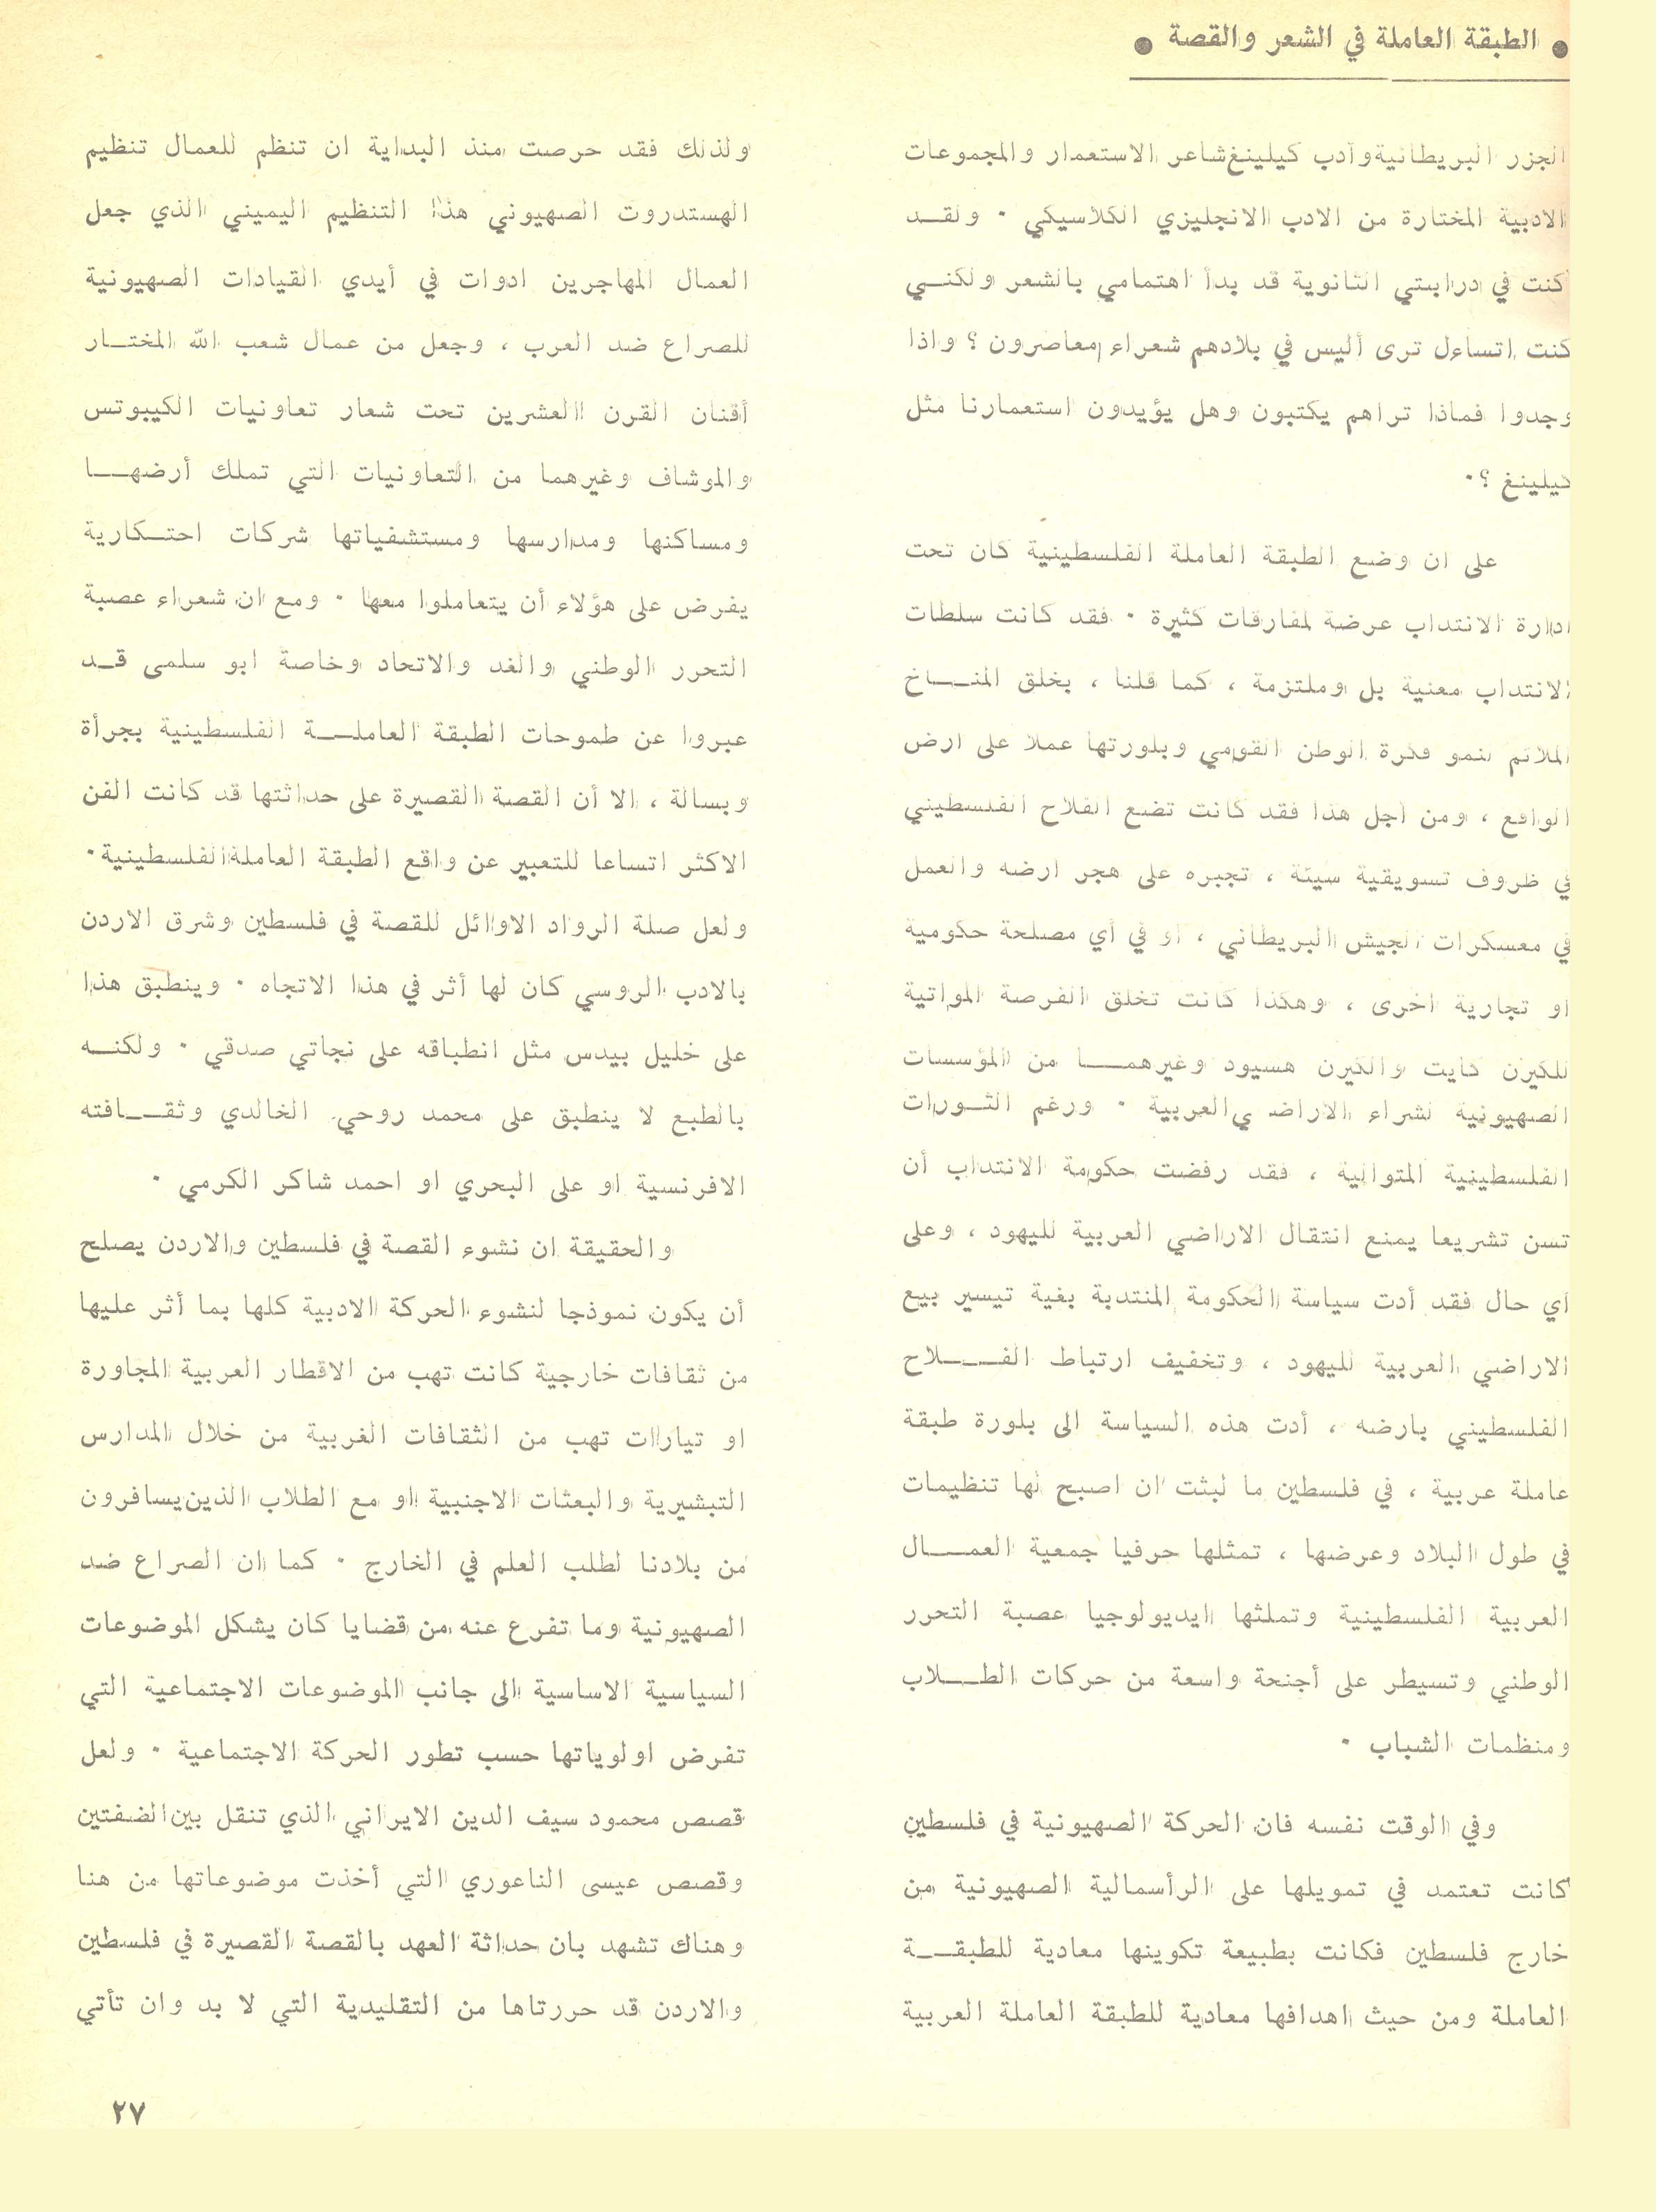 ● الطبقة العاملة في الشعر والقصة ●
الجزر البريطانية وأدب كيلينغ شاعر الاستعمار والمجموعات
الادبية المختارة من الادب الانجليزي الكلاسيكي ٠ ولقـد
كنت في دراستي الثانوية قد بدأ اهتمامي بالشعر ولكنـي
كنت اتساءل ترى أليس في بلادهم شعراء معاصرون ؟ واذا
وجدوا فماذا تراهم يكتبون وهل يؤيدون استعمارنا مثل
كيلينغ ؟٠
على ان وضع الطبقة العاملة الفلسطينية كان تحت
ادارة الانتداب عرضة لمفارقات كثيرة ٠ فقد كانت سلطات
الانتداب معنية بل وملتزمة ، كما قلنا ، بخلق المنـاخ
الملائم لنمو فكرة الوطن القومي وبلورتها عملا على ارض
الواقع ، ومن اجل هذا فقد كانت تضع الفلاح الفلسطيني
في ظروف تسويقية سيئة ، تجبره على هجر ارضه والعمل
في معسكرات الجيش البريطاني ، او في أي مصلحة حكومية
او تجارية اخرى ، وهكذا كانت تخلق الفرصة المواتية
للكيرن كايت والكيرن هسيود وغيرهمـا من المؤسسات
الصهيونية لشراء الاراضي العربية ٠ ورغم الثـورات
الفلسطينية المتوالية ، فقد رفضت حكومة الانتداب أن
تسن تشريعا يمنع انتقال الاراضي العربية لليهود ، وعلى
أي حال فقد أدت سياسة الحكومة المنتدبة بغية تيسير بيع
الاراضي العربية لليهود ، وتخفيف ارتباط الفـلاح
الفلسطيني بارضه ، أدت هذه السياسة الى بلورة طبقة
عاملة عربية ، في فلسطين ما لبثت ان اصبح لها تنظيمات
في طول البلاد وعرضها ، تمثلها حرفيا جمعية العمـال
العربية الفلسطينية وتملثها ايديولوجيا عصبة التحرر
الوطني وتسيطر على أجنحة واسعة من حركات الطـلاب
ومنظمات الشباب ٠
وفي الوقت نفسه فان الحركة الصهيونية في فلسطين
كانت تعتمد في تمويلها على الرأسمالية الصهيونية من
خارج فلسطين فكانت بطبيعة تكوينها معادية للطبقـة
العاملة ومن حيث اهدافها معادية للطبقة العاملة العربية
ولذلك فقد حرصت منذ البداية ان تنظم للعمال تنظيم
الهستدروت الصهيوني هذا التنظيم اليميني الذي جعل
العمال المهاجرين ادوات في أيدي القيادات الصهيونية
للصراع ضد العرب ، وجعل من عمال شعب الله المختـار
أقنان القرن العشرين تحت شعار تعاونيات الكيبوتس
والموشاف وغيرهما من التعاونيات التي تملك أرضهـا
ومساكنها ومدارسها ومستشفياتها شركات احتـكارية
يفرض على هؤلاء أن يتعاملوا معها ٠ ومع ان شعراء عصبة
التحرر الوطني والغد والاتحاد وخاصة ابو سلمى قـد
عبروا عن طموحات الطبقة العاملـة الفلسطينية بجرأة
وبسالة ، الا أن القصة القصيرة على حداثتها قد كانت الفن
الاكثر اتساعا للتعبير عن واقع الطبقة العاملة الفلسطينية٠
ولعل صلة الرواد الاوائل للقصة في فلسطين وشرق الاردن
بالادب الروسي كان لها أثر في هذا الاتجاه ٠ وينطبق هذا
على خليل بيدس مثل انطباقه على نجاتي صدقي ٠ ولكنـه
بالطبع لا ينطبق على محمد روحي الخالدي وثقـافته
الافرنسية او على البحري او احمد شاكر الكرمي ٠
والحقيقة ان نشوء القصة في فلسطين والاردن يصلح
أن يكون نموذجا لنشوء الحركة الادبية كلها بما أثر عليها
من ثقافات خارجية كانت تهب من الاقطار العربية المجاورة
او تيارات تهب من الثقافات الغربية من خلال المدارس
التبشيرية والبعثات الاجنبية او مع الطلاب الذين يسافرون
من بلادنا لطلب العلم في الخارج ٠ كما ان الصراع ضد
الصهيونية وما تفرع عنه من قضايا كان يشكل الموضوعات
السياسية الاساسية الى جانب الموضوعات الاجتماعية التي
تفرض اولوياتها حسب تطور الحركة الاجتماعية ٠ ولعل
قصص محمود سيف الدين الايراني الذي تنقل بين الضفتين
وقصص عيسى الناعوري التي أخذت موضوعاتها من هنا
وهناك تشهد بان حداثة العهد بالقصة القصيرة في فلسطين
والاردن قد حررتاها من التقليدية التي لا بد وان تأتي
٢٧